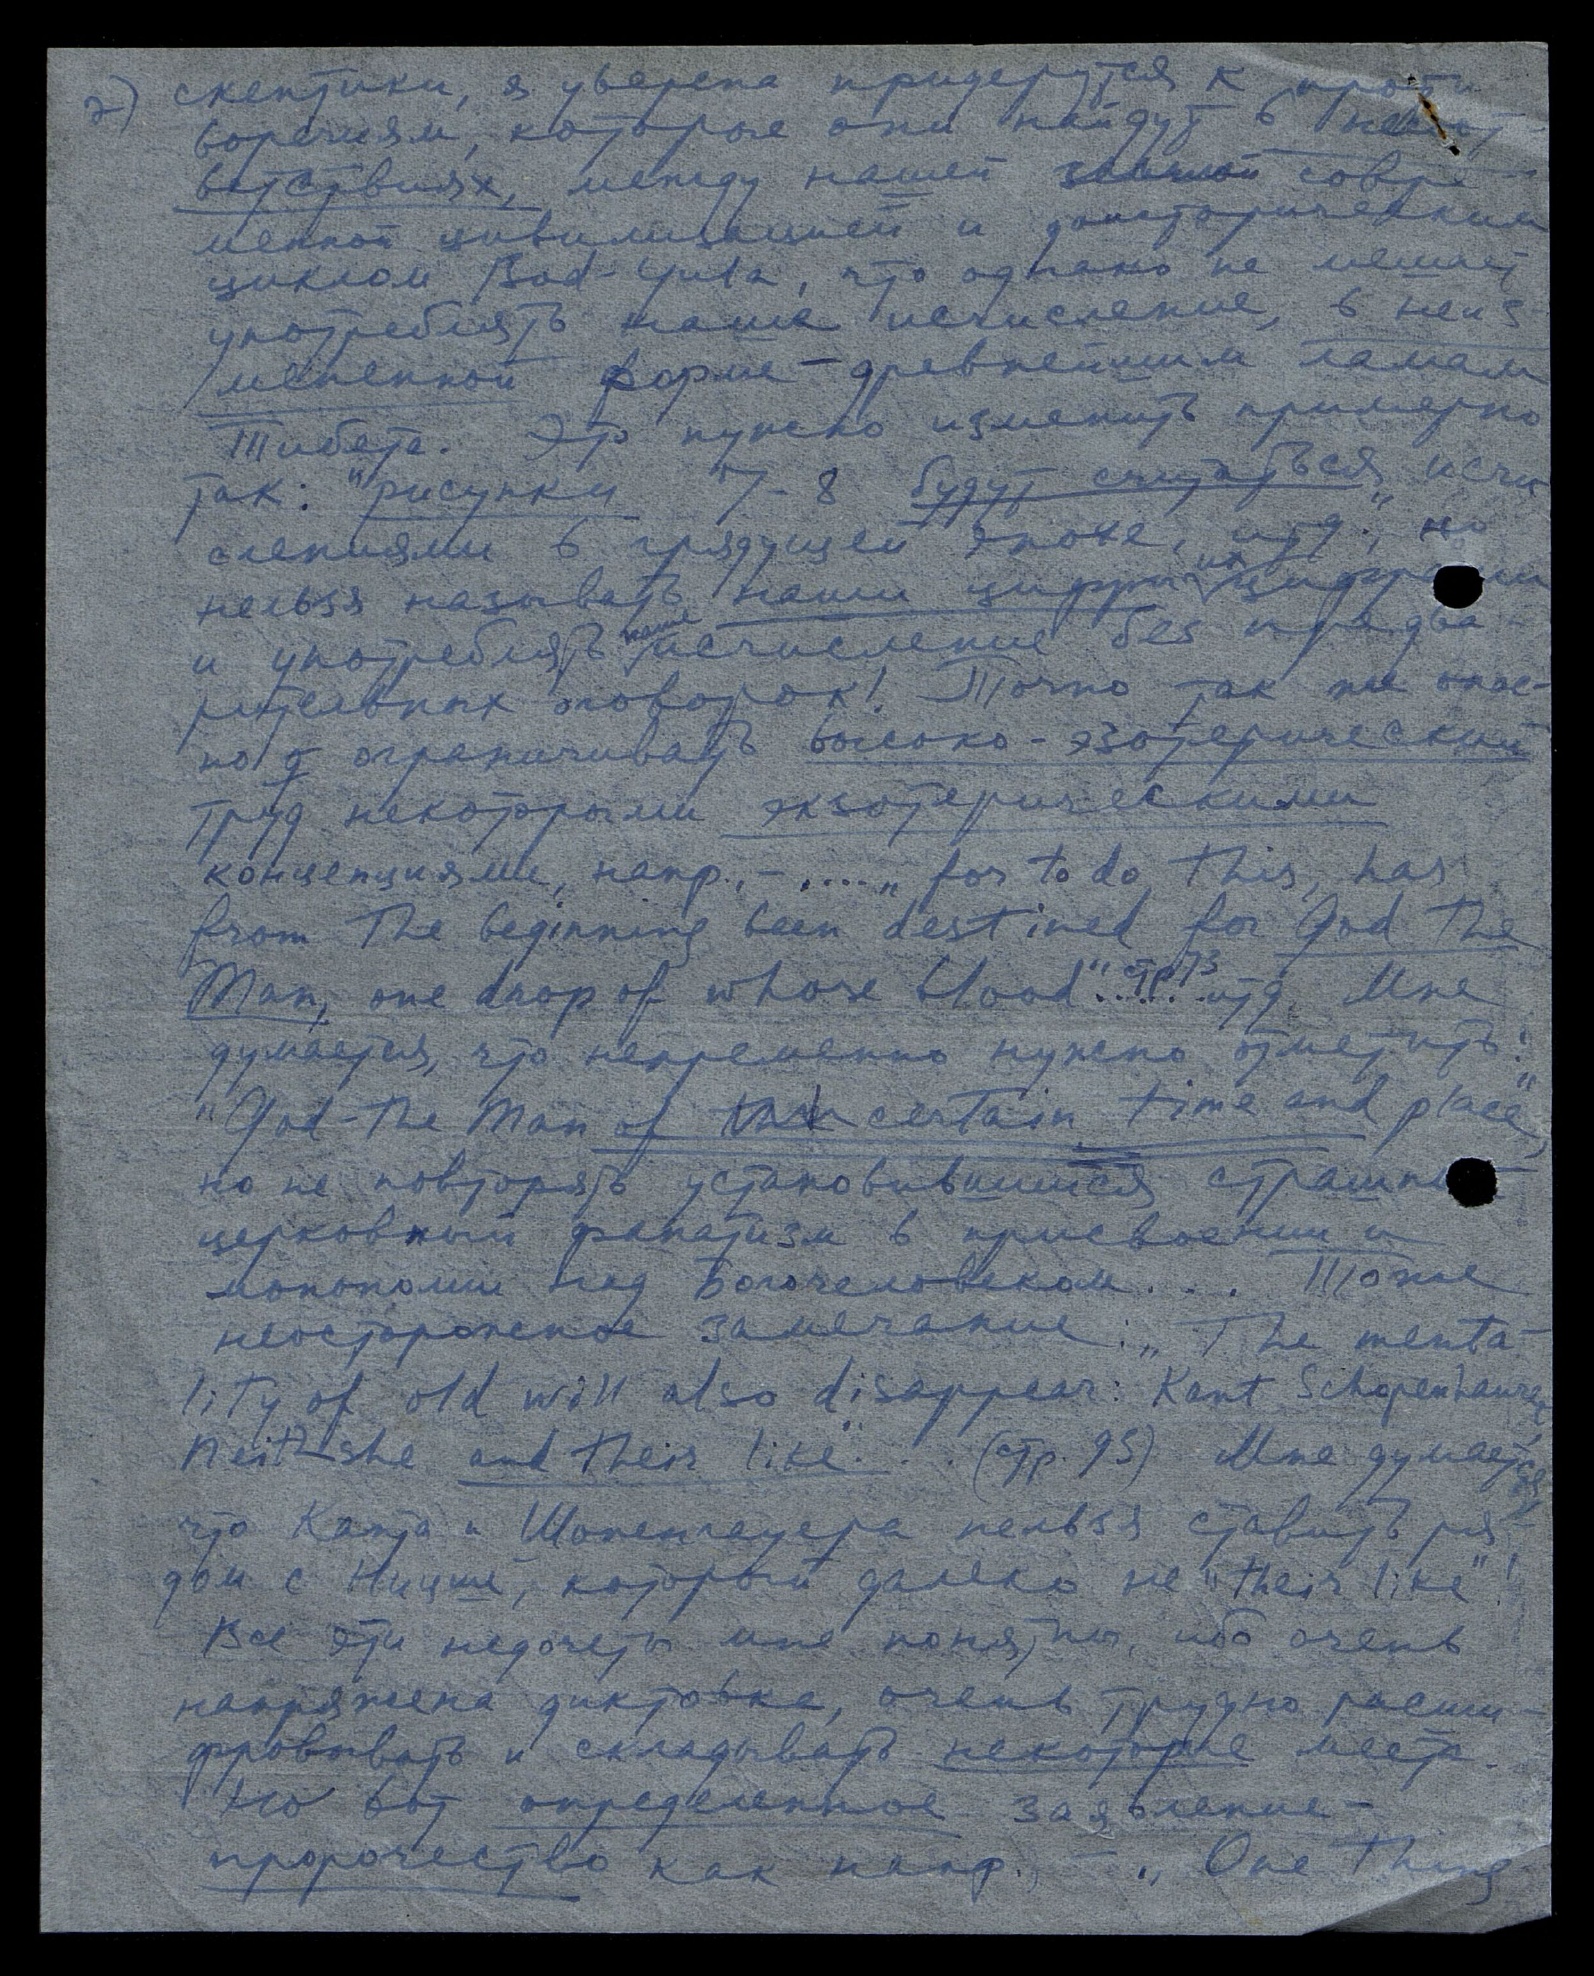 2) скептики, я уверена придерутся к проти
воречиям, которые они найдут в несоот-
ветствиях, между нашей совре-
менной цивилизацией и доисторическим
циклом Bod-Yula, что однако не мешает
употреблять наше исчисление, в неиз-
мененной форме – древнейшим ламам
Тибета. Это нужно изменить примерно
так: "рисунки 7-8 будут считаться исчи
слениями в грядущей эпохе, итд.", но
нельзя называть наши цифры их цифрами
и употреблять наше исчисление без предва-
рительных оговорок! Точно так же опас-
но ограничивать высоко-эзотерический
труд некоторыми экзотерическими
концепциями, напр., – ....„ for to do this, has
from the beginning been destined for God the
Man, one drop of whose blood"..... стр 93 итд. Мне
думается, что непременно нужно отметить:
"God-the Man of certain time and place",
но не повторять установившийся страшный
церковный фанатизм в присвоении и
монополии над Богочеловеком.... Тоже
неосторожное замечание: „The menta-
lity of old will also disappear: Kant Schopenhauer,
Neitzshe and their like"... (стр. 95) Мне думается,
что Канта и Шопенгауера нельзя ставить ря-
дом с Ницше, который далеко не "their like"!
Все эти недочеты мне понятны, ибо очень
напряжена диктовка, очень трудно расши-
фровывать и складывать некоторые места.
Но вот определенное заявление –
пророчество как напр., – „One thing